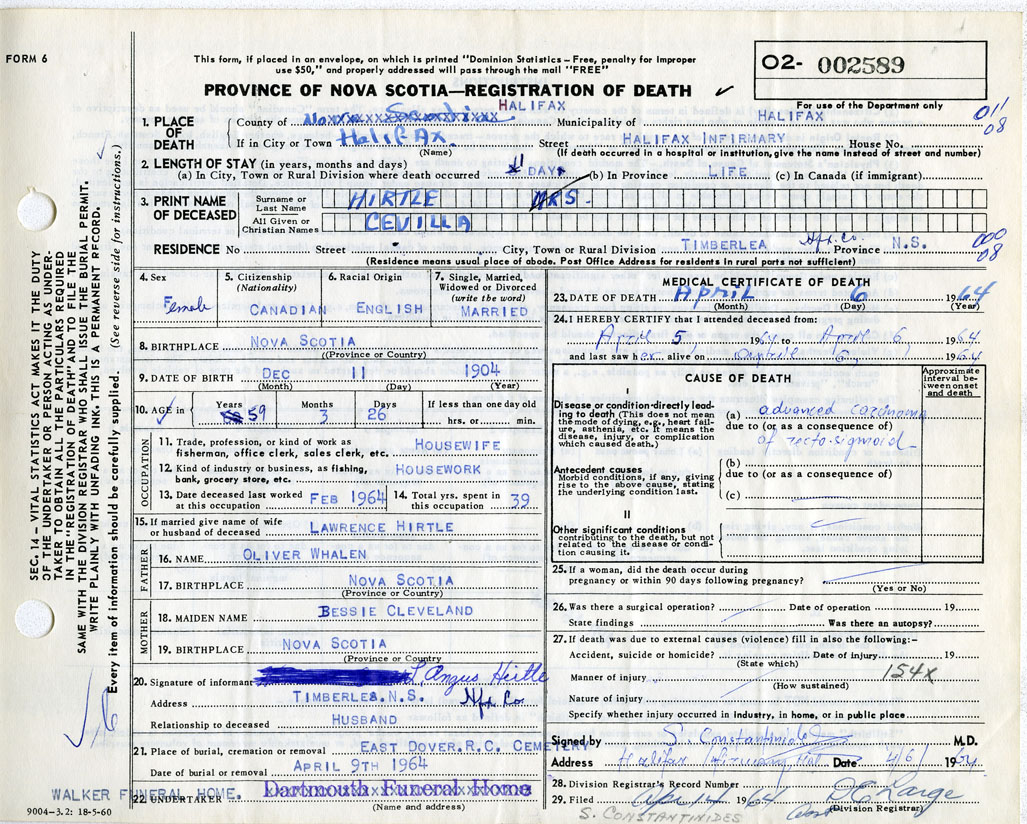 FORM 6
This form, if placed in an envelope, on which is printed "Dominion Statistics – Free, penalty for improper
use $50," and properly addressed will pass through the mail "FREE"
02- 002589
PROVINCE OF NOVA SCOTIA—REGISTRATION OF DEATH ✓
For use of the Department only
1. PLACE OF DEATH
County of HALIFAX Municipality of HALIFAX 011
08
If in City or Town HALIFAX Street HALIFAX INFIRMARY House No.
(Name) (If death occurred in a hospital or institution, give the name instead of street and number)
2. LENGTH OF STAY (in years, months and days)
(a) In City, Town or Rural Division where death occurred 1 DAY (b) In Province LIFE (c) In Canada (if immigrant)
3. PRINT NAME OF DECEASED
Surname or Last Name HIRTLE MRS.
All Given or Christian Names CEVILLA
RESIDENCE No. Street City, Town or Rural Division TIMBERLEA Hfx. Co. Province N.S. 000
08
(Residence means usual place of abode. Post Office Address for residents in rural parts not sufficient)
4. Sex Female
5. Citizenship (Nationality) CANADIAN
6. Racial Origin ENGLISH
7. Single, Married, Widowed or Divorced (write the word) MARRIED
8. BIRTHPLACE NOVA SCOTIA
((Province or Country)
9. DATE OF BIRTH DEC 11 1904
(Month) (Day) (Year)
10. AGE in Years 59 Months 3 Days 26 If less than one day old hrs. or min.
OCCUPATION
11. Trade, profession, or kind of work as fisherman, office clerk, sales clerk, etc. HOUSEWIFE
12. Kind of industry or business, as fishing, bank, grocery store, etc. HOUSEWORK
13. Date deceased last worked at this occupation FEB 1964
14. Total yrs. spent in this occupation 39
15. If married give name of wife or husband of deceased LAWRENCE HIRTLE
FATHER
16. NAME OLIVER WHALEN
17. BIRTHPLACE NOVA SCOTIA
(Province or Country)
MOTHER
18. MAIDEN NAME BESSIE CLEVELAND
19. BIRTHPLACE NOVA SCOTIA
(Province or Country
20. Signature of informant L. Angus Hirtle
Address TIMBERLEA.N.S. Hfx. Co.
Relationship to deceased HUSBAND
21. Place of burial, cremation or removal EAST DOVER.R.C. CEMETERY
Date of burial or removal APRIL 9TH 1964
22. UNDERTAKER WALKER FUNERAL HOME. Dartmouth Funeral Home
(Name and address)
9004–3.2: 18-5-60
MEDICAL CERTIFICATE OF DEATH
23. DATE OF DEATH APRIL 6 1964
(Month) (Day) (Year)
24. I HEREBY CERTIFY that I attended deceased from:
April 5, 1964 to April 6 1964
and last saw her alive on April 6, 1964
CAUSE OF DEATH
Approximate interval between onset and death
I
Disease or condition directly leading to death (This does not mean the mode of dying, e.g., heart failure, asthenia, etc. It means the disease, injury, or complication which caused death.)
(a) advanced carcinoma
due to (or as a consequence of)
of recto-sigmoid
Antecedent causes
Morbid conditions, if any, giving rise to the above cause, stating the underlying condition last.
(b)
due to (or as a consequence of)
(c)
II
Other significant conditions contributing to the death, but not related to the disease or condition causing it.
25. If a woman, did the death occur during pregnancy or within 90 days following pregnancy?
(Yes or No)
26. Was there a surgical operation? Date of operation 19
State findings Was there an autopsy?
27. If death was due to external causes (violence) fill in also the following:–
Accident, suicide or homicide? Date of injury 19
(State which)
Manner of injury 154X
(How sustained)
Nature of injury
Specify whether injury occurred in industry, in home, or in public place
Signed by S. Constantinides M.D.
Address Halifax Infirmary Date 4/6/ 1964
28. Division Registrar's Record Number
29. Filed Apr 14 1964
(Division Registrar)
S. CONSTANTINIDES
SEC. 14 – VITAL STATISTICS ACT MAKES IT THE DUTY
OF THE UNDERTAKER OR PERSON ACTING AS UNDER-
TAKER TO OBTAIN ALL THE PARTICULARS REQUIRED
IN THE "REGISTRATION OF DEATH" AND TO FILE THE
SAME WITH THE DIVISION REGISTRAR WHO SHALL ISSUE THE BURIAL PERMIT.
WRITE PLAINLY WITH UNFADING INK. THIS IS A PERMANENT RECORD.
Every item of information should be carefully supplied. (See reverse side for instructions.)